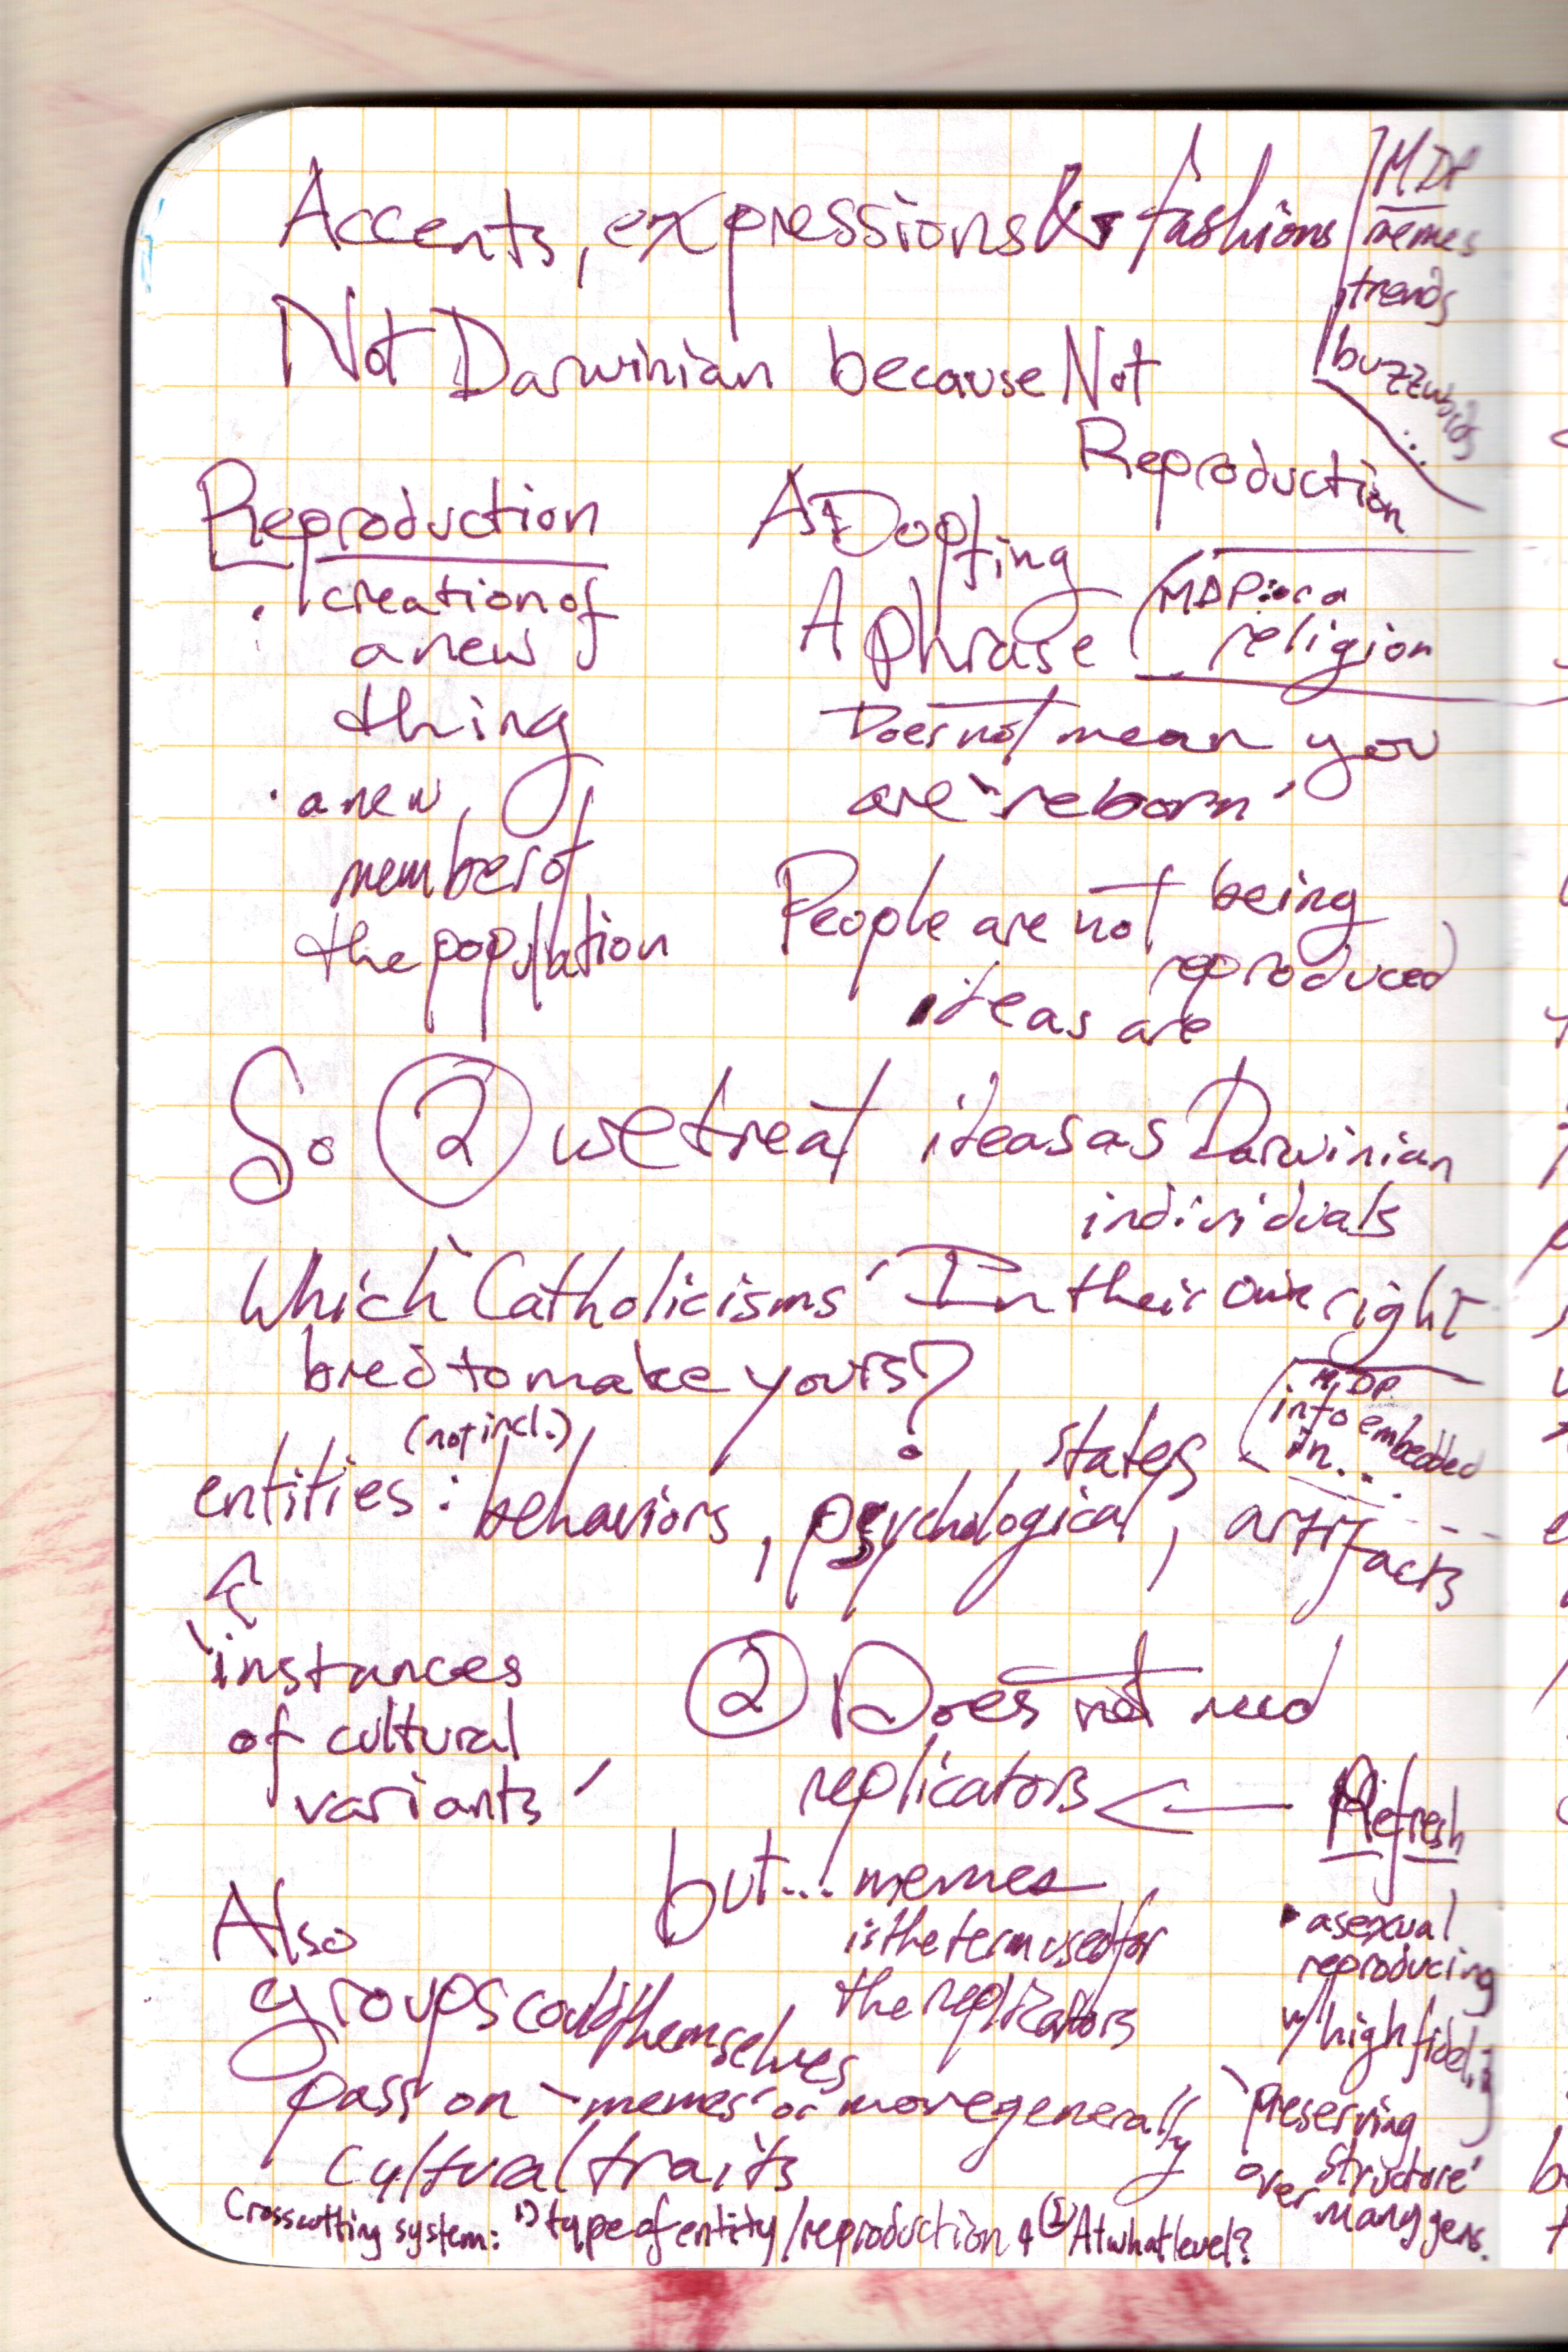 Accents, expressions & fashions
MDP
memes
trends
buzzwords
...
Not Darwinian because Not
Reproduction
Reproduction
· creation of
a new
thing
· a new
member of
the population
Adopting
A phrase
MDP: or a
religion
Does not mean you
are "reborn"
People are not being
reproduced
ideas are
So ② we treat ideas as Darwinian
individuals
Which "Catholicisms" In their own right
bred to make yours?
MDP
into embedded
in...
(not incl.)
entities: behaviors, psychological states, artifacts
"instances
of cultural
variants"
② Does not need
replicators ← Refresh
but... memes
is the term used for
the replicators
• asexual
reproducing
w/ high fidelity
"preserving
structure"
over many gens.
Also
groups could themselves
pass on "memes" or more generally
cultural traits
Crosscutting system: 1) type of entity/reproduction & ② At what level?